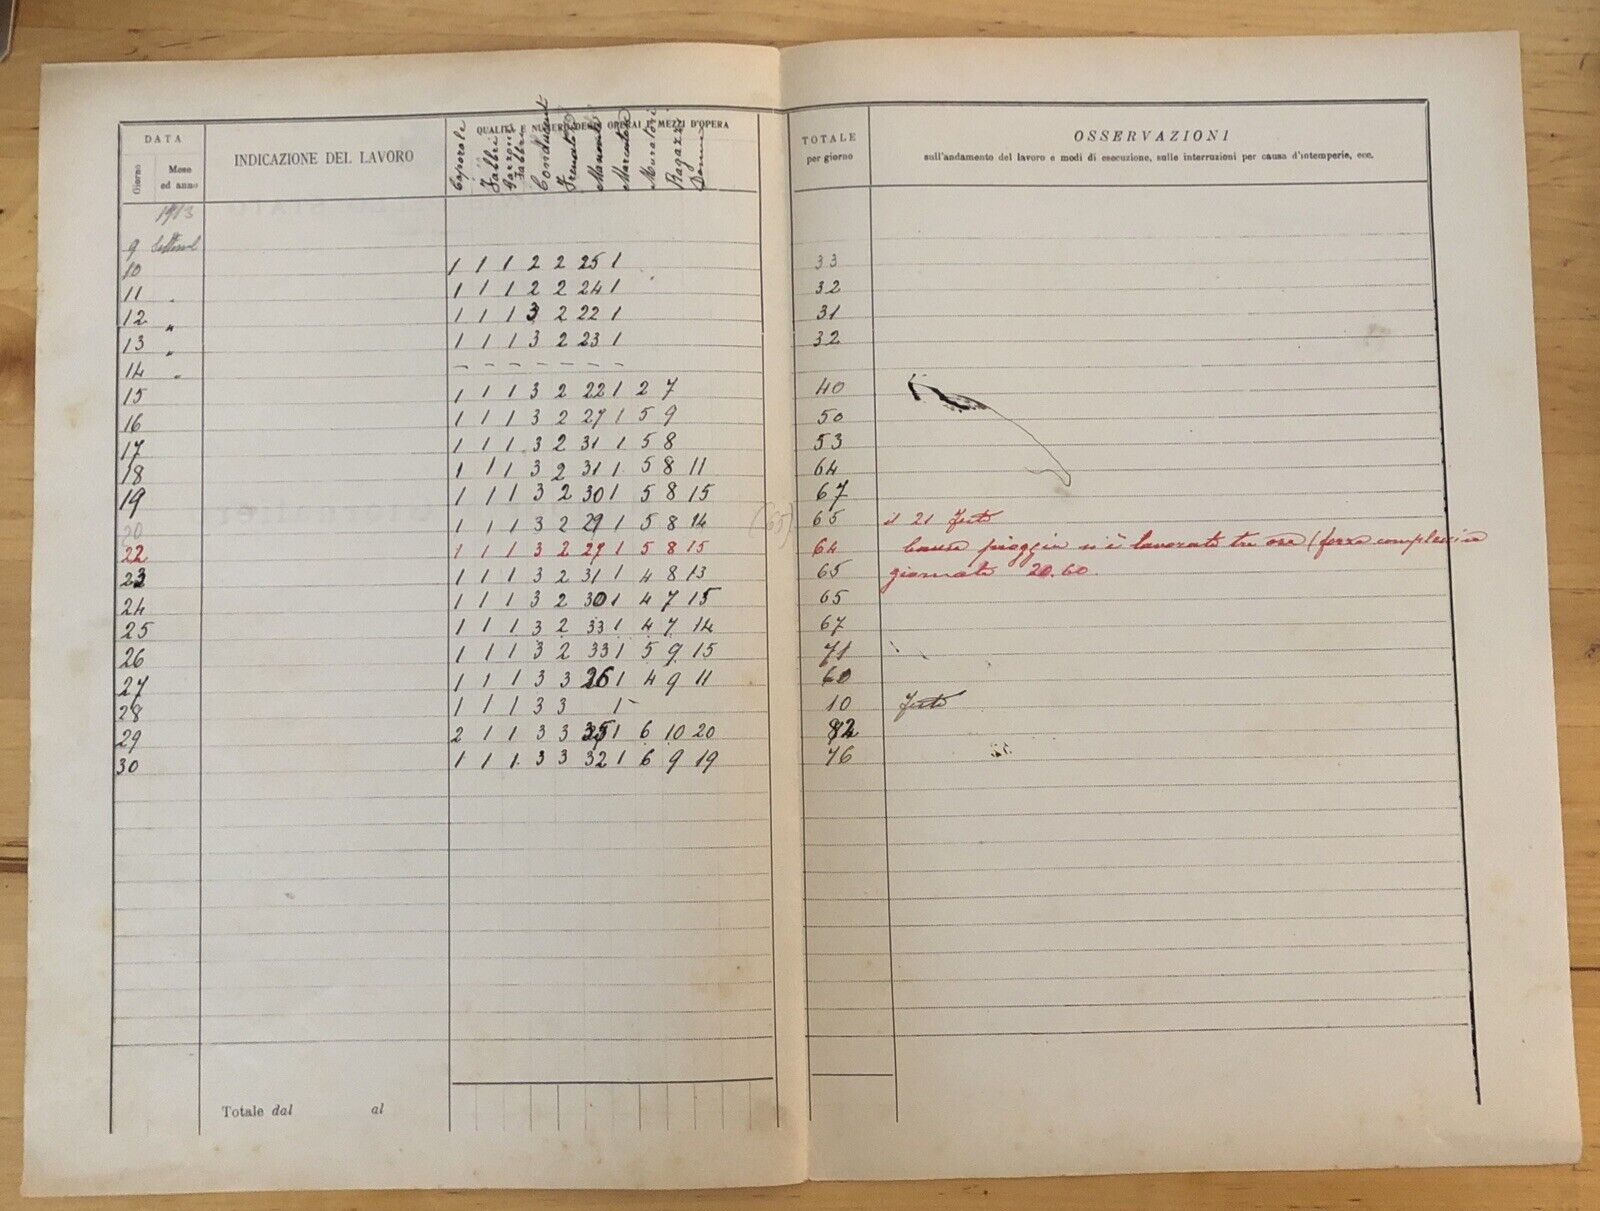 DATA
Giorno
Mese
ed anno
INDICAZIONE DEL LAVORO
QUALITÀ E NUMERO DEGLI OPERAI E MEZZI D'OPERA
Caporale
Fabbri
Garzoni
Fabbri
Manovali
Muratori
Ragazzi
Donne
TOTALE
per giorno
OSSERVAZIONI
sull'andamento del lavoro e modi di esecuzione, sulle interruzioni per causa d'intemperie, ecc.
1913
9
10 1 1 1 2 2 25 1 33
11 " 1 1 1 2 2 24 1 32
12 " 1 1 1 3 2 22 1 31
13 " 1 1 1 3 2 23 1 32
14 " – – – – – – –
15 1 1 1 3 2 22 1 2 7 40
16 1 1 1 3 2 27 1 5 9 50
17 1 1 1 3 2 31 1 5 8 53
18 1 1 1 3 2 31 1 5 8 11 64
19 1 1 1 3 2 30 1 5 8 15 67
1 1 1 3 2 29 1 5 8 14 (65) 65 il 21 Festa
22 1 1 1 3 2 27 1 5 8 15 64 Causa pioggia n'è lavorato tre ore (forza complessiva
23 1 1 1 3 2 31 1 4 8 13 65 giornate 20.60.
24 1 1 1 3 2 30 1 4 7 15 65
25 1 1 1 3 2 33 1 4 7 14 67
26 1 1 1 3 2 33 1 5 9 15 71
27 1 1 1 3 3 26 1 4 9 11 60
28 1 1 1 3 3 1 – 10 Festa
29 2 1 1 3 3 35 1 6 10 20 82
30 1 1 1 3 3 32 1 6 9 19 76
Totale dal al